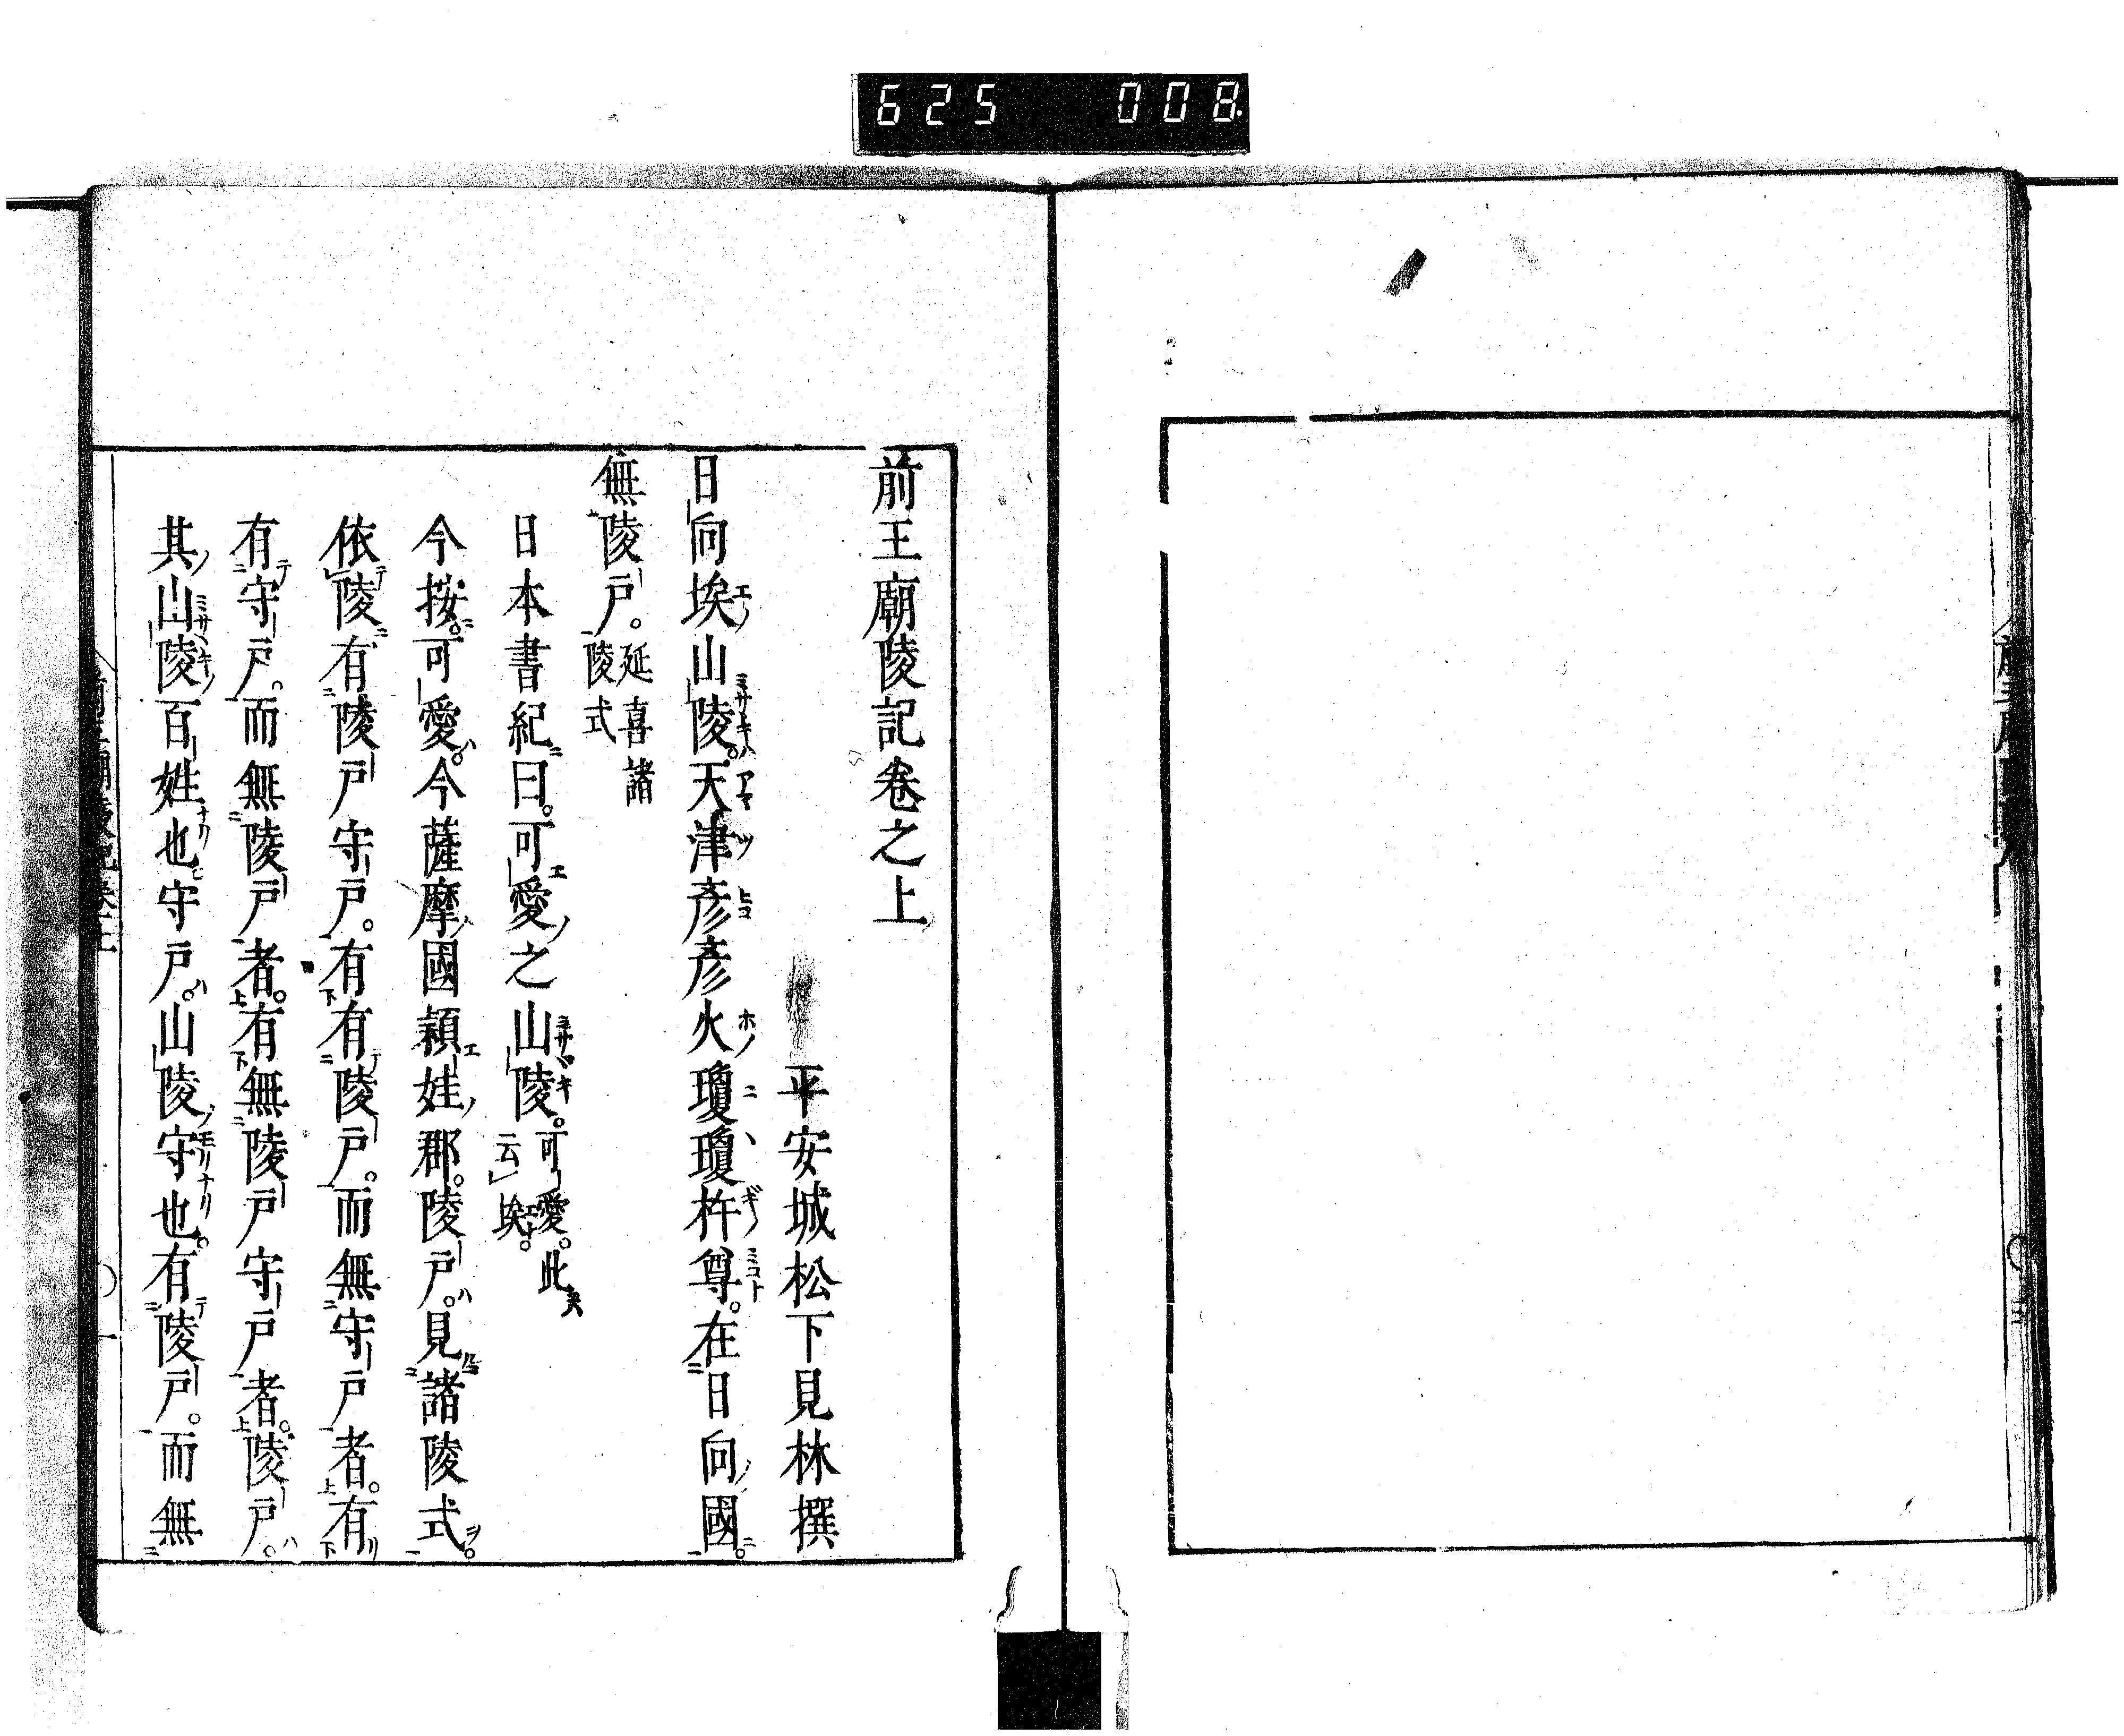 625 008
前王廟陵記卷之上
平安城松下見林撰
日向埃山陵。天津彥彥火瓊瓊杵尊。在日向國。
無陵戶。延喜諸
陵式
日本書紀曰。可愛之山陵。可愛。此
云埃。
今按。可愛。今薩摩國潁娃郡。陵戶。見諸陵式。
依陵有陵戶守戶。有有陵戶。而無守戶者。有
有守戶。而無陵戶者。有無陵戶守戶者。陵戶。
其山陵百姓也守戶。山陵守也。有陵戶。而無